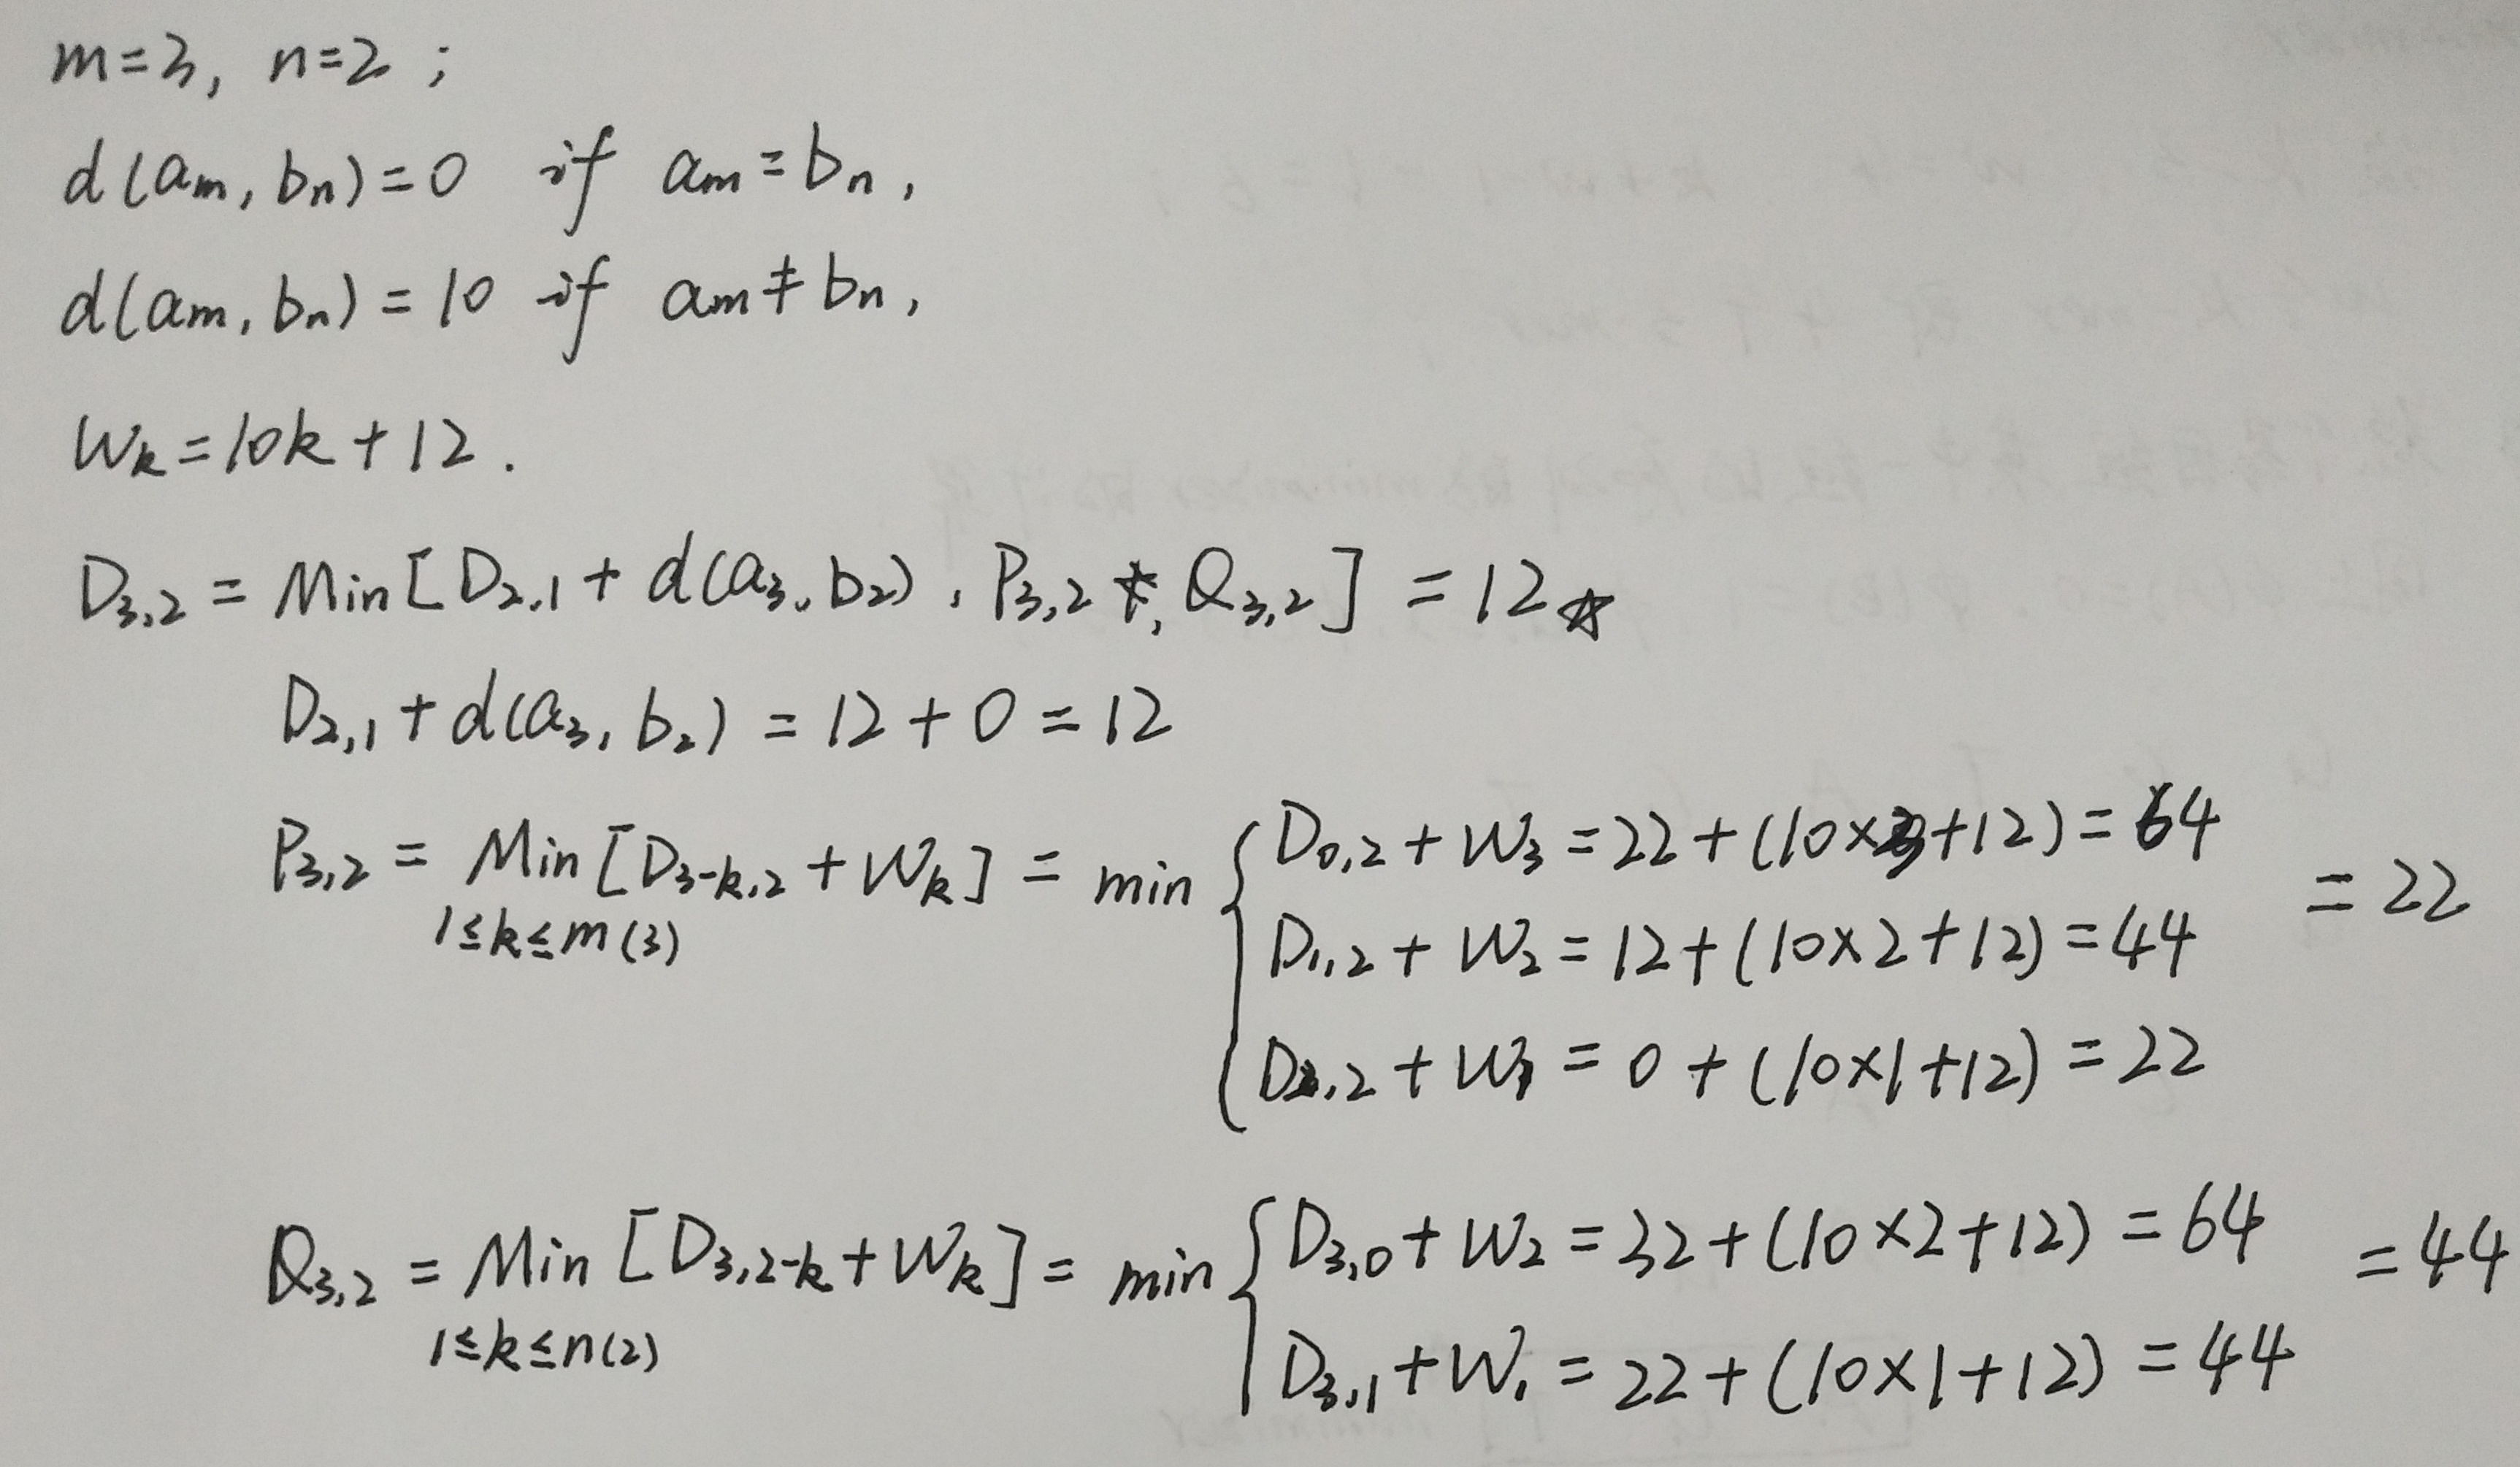 m=3, n=2 ;
d(am, bn)=0 if am=bn,
d(am, bn)=10 if am≠bn,
Wk=10k+12.
D3,2 = Min[D2,1 + d(a3, b2), P3,2, Q3,2] = 12
D2,1 + d(a3, b2) = 12 + 0 = 12
P3,2 = Min[D3-k,2 + Wk] = min { D0,2 + W3 = 22 + (10×3+12) = 64
1≤k≤m(3)
D1,2 + W2 = 12 + (10×2+12) = 44
= 22
D2,2 + W1 = 0 + (10×1+12) = 22
Q3,2 = Min [D3,2-k + Wk] = min { D3,0 + W2 = 32 + (10×2+12) = 64
= 44
1≤k≤n(2)
D3,1 + W1 = 22 + (10×1+12) = 44